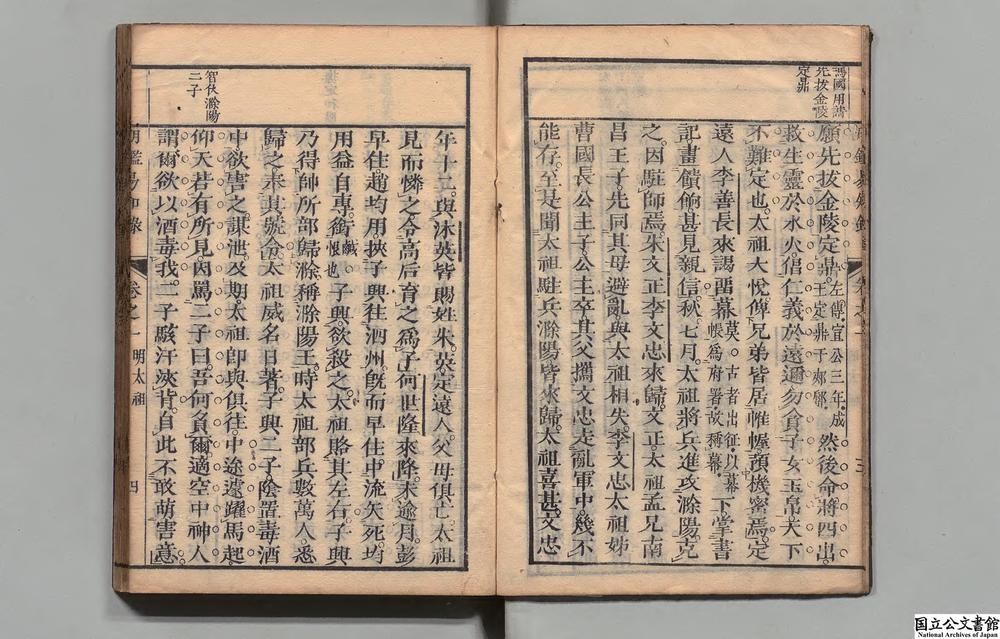 馮國用請
先拔金陵
定鼎
願先拔金陵定鼎。左傳宣公三年成王定鼎于郟鄏。然後命將四出。
救生靈於水火。倡仁義於遠邇。勿貪子女玉帛。天下
不難定也。太祖大悅。俾兄弟皆居帷幄預機密焉。定
遠人李善長來謁西幕。莫。古者出征以幕帳爲府署故稱幕。下。掌書
記。畫饋餉。甚見親信。秋七月。太祖將兵進攻滁陽。克
之。因駐師焉。朱文正李文忠來歸。文正太祖孟兄南
昌王子。先同其母避亂。與太祖相失。李文忠太祖姊
曹國長公主子。公主卒。其父攜文忠走亂軍中。幾不
能存。至是聞太祖駐兵滁陽。皆來歸。太祖喜甚。文忠
三
年十二。與沐英皆賜姓朱。英定遠人。父母俱亡。太祖
見而憐之。令高后育之爲子。何世隆來降。未逾月。彭
早住趙均用挾子興往泗州。既而早住中流矢死。均
用益自專。銜鹹。恨也子興欲殺之。太祖賂其左右。子興
乃得帥所部歸滁。稱滁陽王。時太祖部兵數萬人。悉
歸之。奉其號令。太祖威名日著。子興二子陰置毒酒
中欲害之。謀泄。及期。太祖即與俱往。中途遽躍馬起
仰天若有所見。因罵二子曰。吾何負爾。適空中神人
謂爾欲以酒毒我。二子駭汗浹背。自此不敢萌害意。
智伏滁陽
二子
卷之一 明太祖 四
国立公文書館
National Archives of Japan